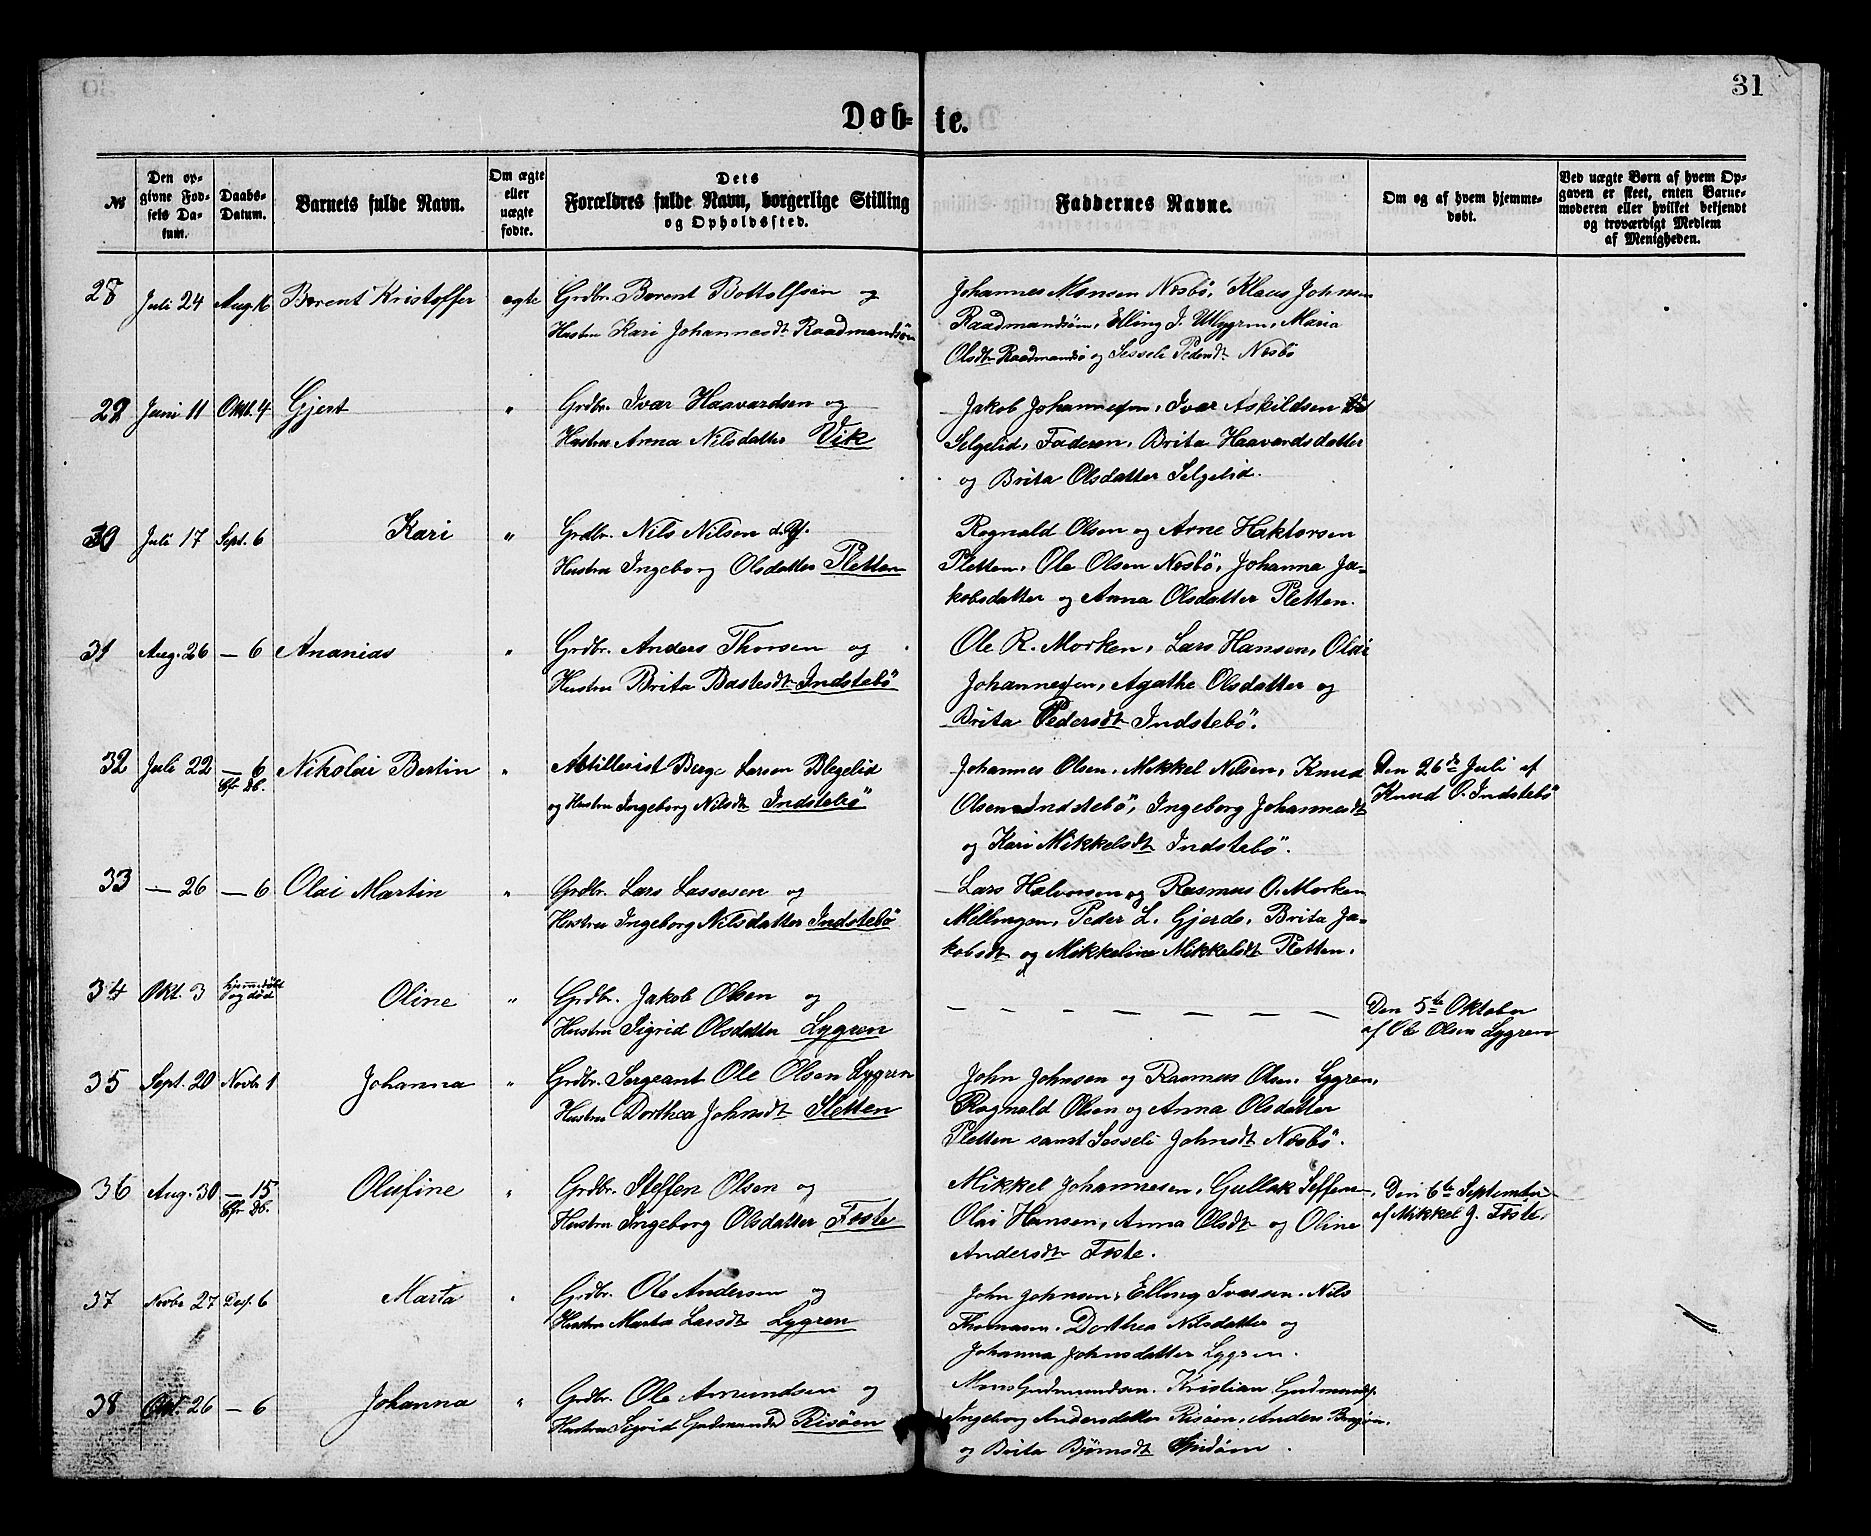 31
Døb- te.
№
Den op-
givne Fød-
sels Da-
tum.
Daabs-
Datum.
Barnets fulde Navn.
Om ægte
eller
uægte
fødte.
Dets
Forældres fulde Navn, borgerlige Stilling
og Opholdssted.
Faddernes Navne.
Om og af hvem hjemme-
døbt.
Ved uægte Børn af hvem Op-
gaven er skeet, enten Barne-
moderen eller hvilket bekjendt
og troværdigt Medlem
af Menigheden.
28 Juli 24 Aug. 16 Berent Kristoffer ægte Grdbr. Berent Bottolfsen og
Hustru Kari Johannesdt Raadmandsøen
Johannes Monsen Nosbö, Klaus Johnsen
Raadmandsöen, Elling J. Ulygren, Maria
Olsdt. Raadmandsö og Sesseli Pedersdt Nosbö
29 Juni 11 Oktb. 4 Gjert " Grdbr. Ivar Haavardsen og
Hustru Anna Nilsdatter Vik
Jakob Johannesen, Ivar Askildsen
Selgelid, Faderen, Brita Haavardsdatter
og Brita Olsdatter Selgelid.
30 Juli 17 Sept. 6 Kari " Grdbr. Nils Nilsen d. Y.
Hustru Ingeborg Olsdatter Sletten
Rognald Olsen og Arne Haktorsen
Sletten, Ole Olsen Nosbö, Johanna Ja-
kobsdatter og Anna Olsdatter Sletten.
31 Aug. 26 — 6 Ananias " Grdbr. Anders Thorsen og
Hustru Brita Bastesdt Indstebö
Ole R. Morken, Lars Hansen, Olai
Johannesen, Agathe Olsdatter og
Brita Pedersdt Indstebö.
32 Juli 22 — 6 Nikolai Bertin " Artillerist Berge Larsen Blegelid
og Hustru Ingeborg Nilsdt Indstebö
Johannes Olsen, Mikkel Nilsen, Knud
Olsen Indstebö, Ingeborg Johannesdt
og Kari Mikkelsdt Indstebö.
Den 26de Juli af
Knud O. Indstebö
33 — 26 — 6 Olai Martin " Grdbr. Lars Lassesen og
Hustru Ingeborg Nilsdatter Indstebö
Lars Halvorsen og Rasmus O. Morken
Mellingen, Peder L. Gjerde, Brita Ja-
kobsdt og Mikkeline Mikkelsdt Sletten.
34 Okt. 3 Hjemmedöbt
og död Oline " Grdbr. Jakob Olsen og
Hustru Sigrid Olsdatter Lygren
— — — — — — — —
Den 5te Oktober
af Ole Olsen Lygren
35 Sept. 20 Novbr 1 Johanna " Grdbr. Sergeant Ole Olsen Lygren
Hustru Dorthea Johnsdt Sletten
John Johnsen og Rasmus Olsen Lygren,
Rognald Olsen og Anna Olsdatter
Sletten samt Sesseli Johnsdt Nosbö.
36 Aug. 30 — 15 Olufine " Grdbr. Steffen Olsen og
Hustru Ingeborg Olsdatter Foste
Mikkel Johannesen, Gullak Seffens,
Olai Hansen, Anna Olsdt og Oline
Andersdt Foste.
Den 6te September
af Mikkel J. Foste.
37 Novbr 27 Des. 6 Marta " Grdbr. Ole Andersen og
Hustru Marta Larsdt Lygren
John Johnsen, Elling Iversen, Nils
Thomasen, Dorthea Nilsdatter og
Johanna Johnsdatter Lygren.
38 Okt. 26 — 6 Johanna " Grdbr. Ole Amundsen og
Hustru Sigrid Gudmundsd Risöen
Mons Gudmundsen, Kristian Gudmunds.
Ingeborg Andersdatter Risöen, Anders
og Brita Björnsdt